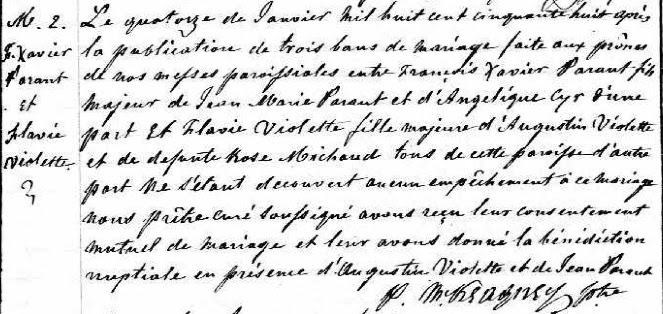 M. 2.
F. Xavier
Parant
Et
Flavie
Violette
Le quatorze de Janvier mil huit cent cinquante huit après
la publication de trois bans de mariage faite aux prônes
de nos messes paroissiales entre François Xavier Parant fils
majeur de Jean Marie Parant et d'Angélique Cyr d'une
part Et Flavie Violette fille majeure d'Augustin Violette
et de defunte Rose Michaud tous de cette paroisse d'autre
part ne s'étant decouvert aucun empêchement à ce mariage
nous prêtre curé Soussigné avons reçu leur consentement
mutuel de mariage et leur avons donné la bénédiction
nuptiale en présence d'Augustin Violette et de Jean Parant
P. McKeagney Ptre